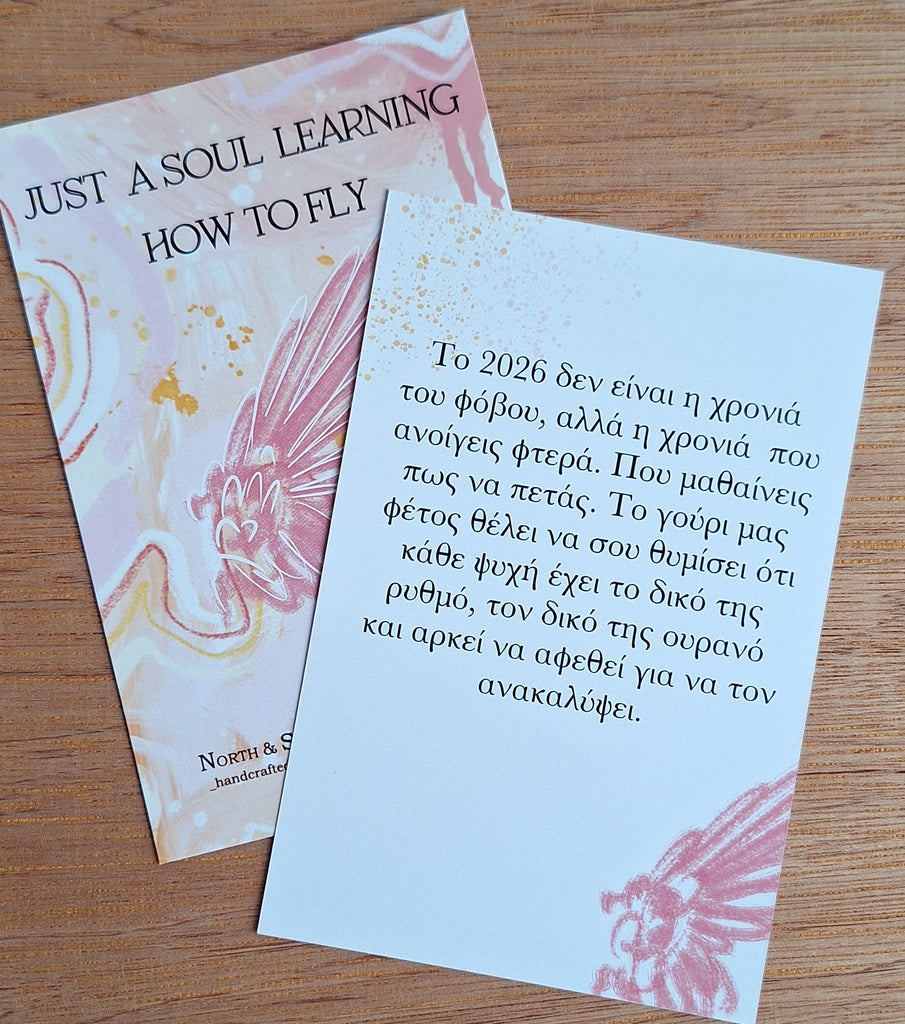 JUST A SOUL LEARNING
HOW TO FLY
NORTH &
_handcrafted
Το 2026 δεν είναι η χρονιά
του φόβου, αλλά η χρονιά που
ανοίγεις φτερά. Που μαθαίνεις
πως να πετάς. Το γούρι μας
φέτος θέλει να σου θυμίσει ότι
κάθε ψυχή έχει το δικό της
ρυθμό, τον δικό της ουρανό
και αρκεί να αφεθεί για να τον
ανακαλύψει.